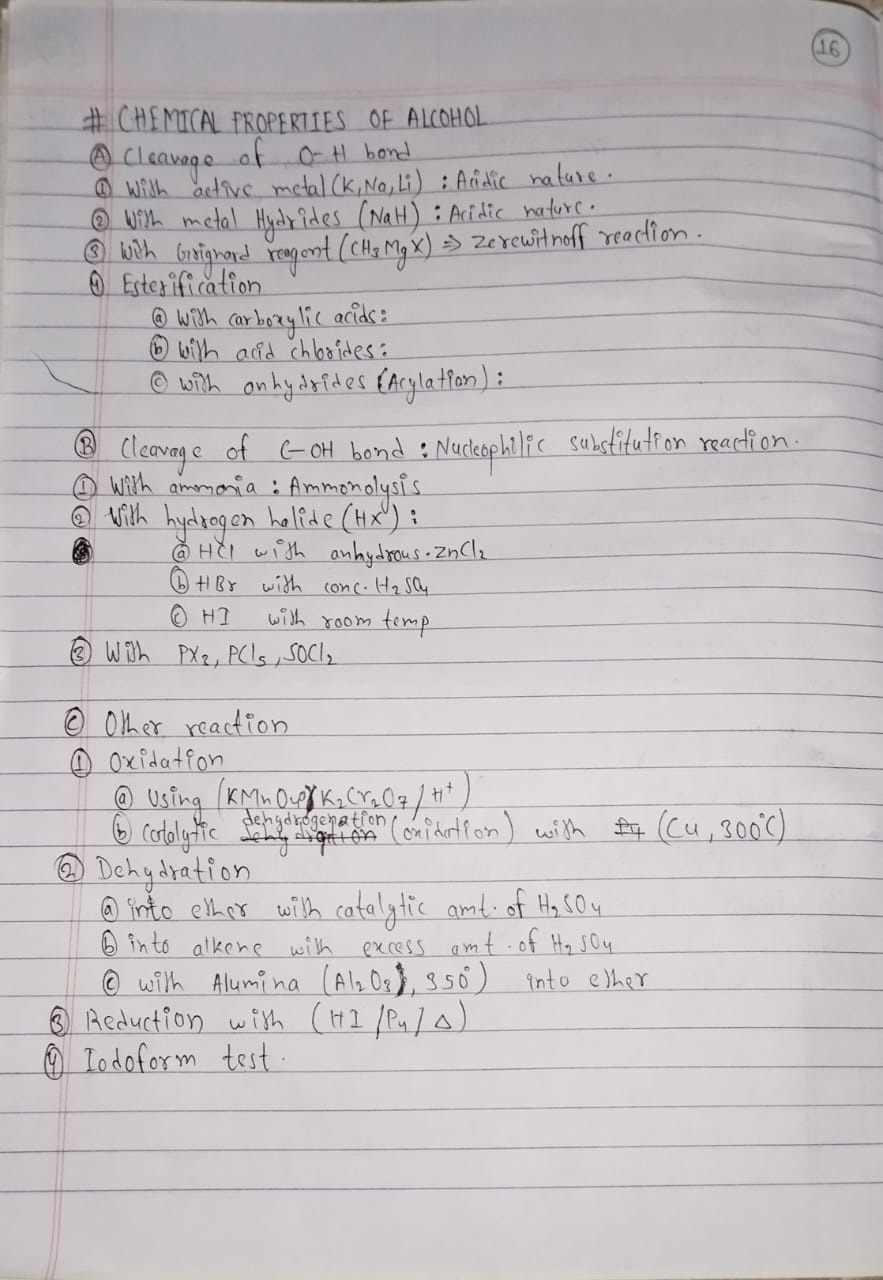 16
# CHEMICAL PROPERTIES OF ALCOHOL
Ⓐ Cleavage of O-H bond
① With active metal (K, Na, Li) : Acidic nature.
② With metal Hydrides (NaH) : Acidic nature.
③ With Grignard reagent (CH3MgX) ⇒ Zerewitnoff reaction.
④ Esterification
ⓐ With carboxylic acids:
ⓑ With acid chlorides:
ⓒ with anhydrides (Acylation) :
Ⓑ Cleavage of C-OH bond : Nucleophilic substitution reaction.
① With ammonia : Ammonolysis
② With hydrogen halide (HX) :
ⓐ HCl with anhydrous. ZnCl2
ⓑ HBr with conc. H2SO4
ⓒ HI with room temp
③ With PX3, PCl5, SOCl2
Ⓒ Other reaction
① Oxidation
ⓐ Using (KMnO4/K2Cr2O7/H+)
ⓑ Catalytic dehydrogenation (oxidation) with (Cu, 300°C)
② Dehydration
ⓐ into ether with catalytic amt. of H2SO4
ⓑ into alkene with excess amt. of H2SO4
ⓒ with Alumina (Al2O3), 350°) into ether
③ Reduction with (HI/P4/Δ)
④ Iodoform test.